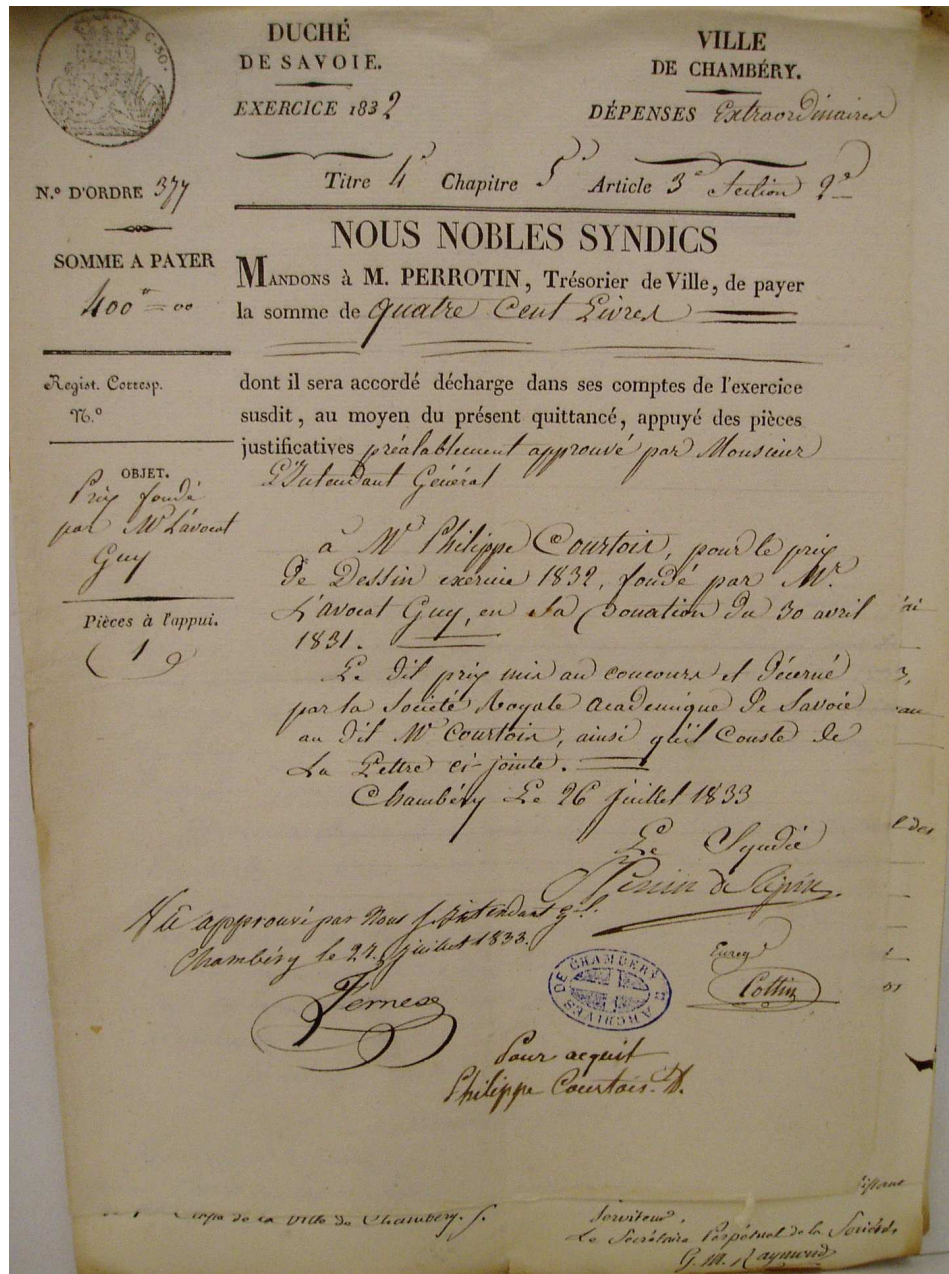 G. 50.
DUCHÉ
DE SAVOIE.
EXERCICE 1832
VILLE
DE CHAMBÉRY.
DÉPENSES Extraordinaires
Titre 4e Chapitre 5e Article 3e Section 2e
N.º D'ORDRE 377
SOMME A PAYER
400 = 00
Regist. Corresp.
N.º
OBJET.
Prix fondé
par Mr L'avocat
Guy
Pièces à l'appui.
1
NOUS NOBLES SYNDICS
MANDONS à M. PERROTIN, Trésorier de Ville, de payer
la somme de quatre Cent Livres
dont il sera accordé décharge dans ses comptes de l'exercice
susdit, au moyen du présent quittancé, appuyé des pièces
justificatives préalablement approuvé par Monsieur
L'Intendant Général
à Mr Philippe Courtois, pour le prix
de Dessin exercice 1832, fondé par Mr.
L'avocat Guy, en sa Donation du 30 avril
1831.
Le dit prix mis au concours et décerné
par la Société Royale académique de Savoie
au dit Mr Courtois, ainsi qu'il Conste de
La Lettre ci-jointe.
Chambéry Le 26 juillet 1833
Le Syndic
Vu approuvé par Nous Intendant gl.
Chambéry le 27 juillet 1833.
Enreg
Cottin
ARCHIVES DE CHAMBERY
Pour acquit
Philippe Courtois
de la Ville de Chambéry.
Serviteur,
Le Secrétaire Perpétuel de la Société
G. M. Raymond